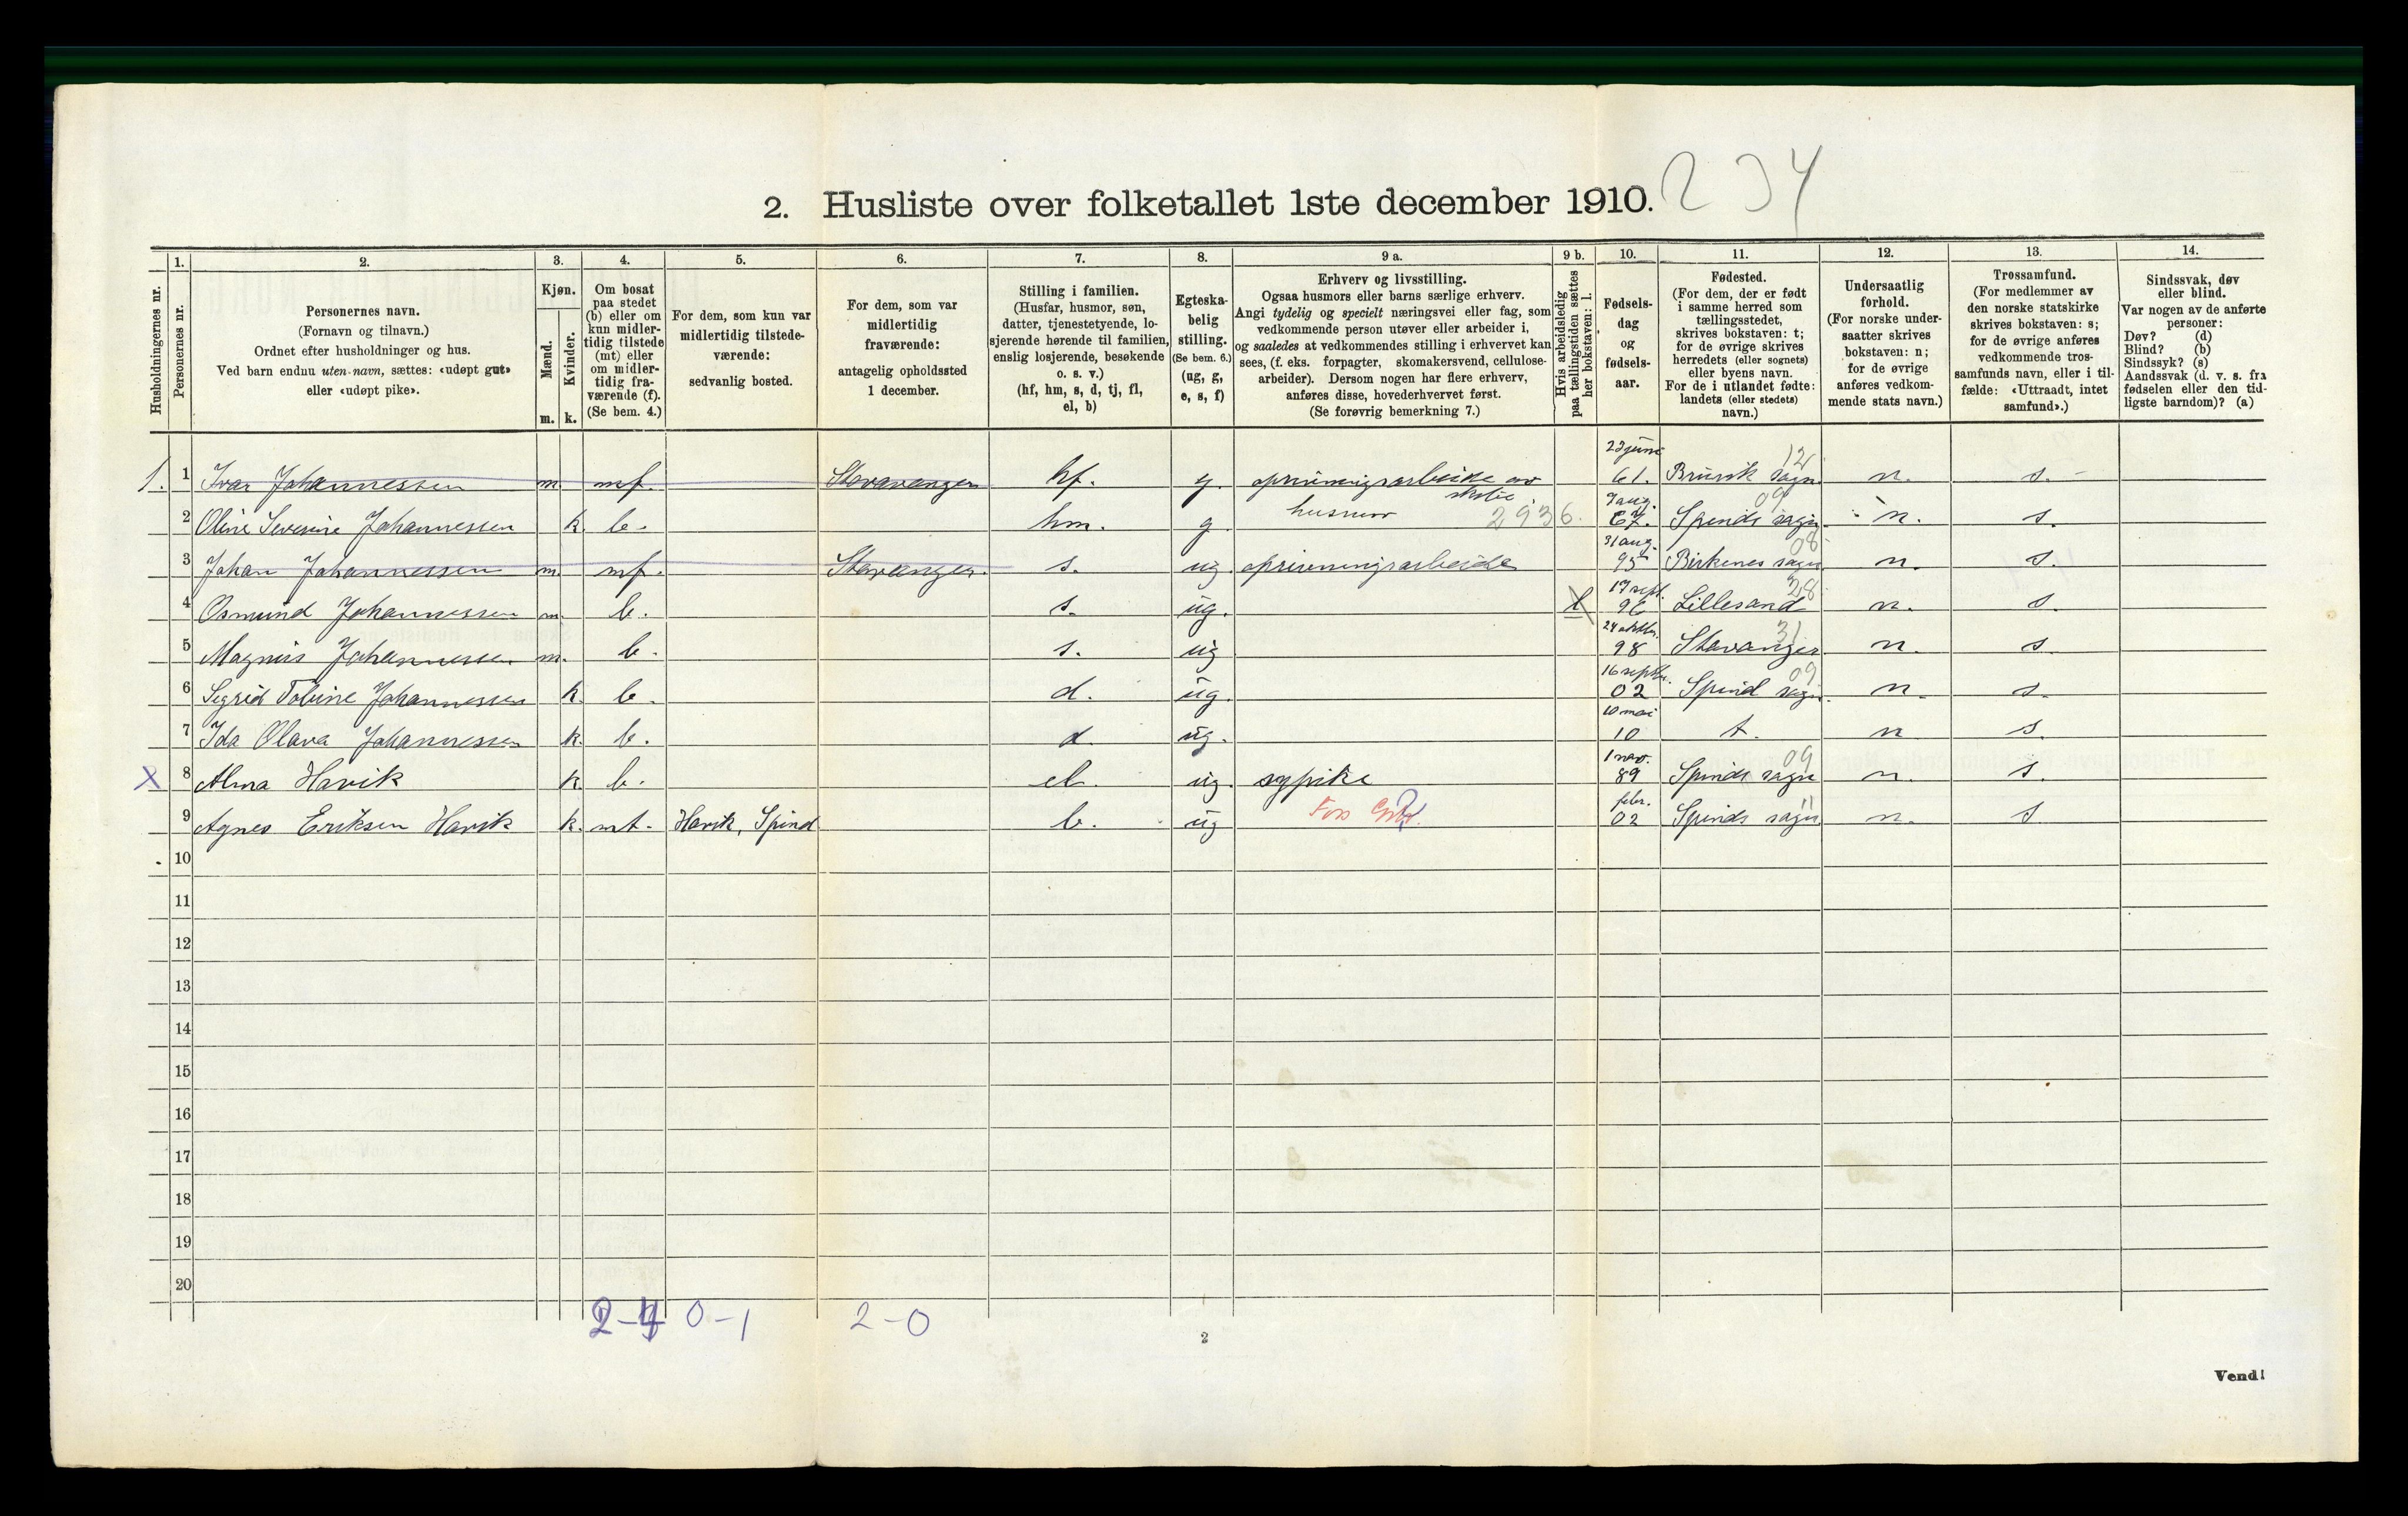 2. Husliste over folketallet 1ste december 1910. 234
Husholdningernes nr.
1. Personernes nr.
2. Personernes navn.
(Fornavn og tilnavn.)
Ordnet efter husholdninger og hus.
Ved barn endnu uten navn, sættes: «udøpt gut»
eller «udøpt pike».
3. Kjøn.
Mænd. m.
Kvinder. k.
4. Om bosat
paa stedet
(b) eller om
kun midler-
tidig tilstede
(mt) eller
om midler-
tidig fra-
værende (f).
(Se bem. 4.)
5. For dem, som kun var
midlertidig tilstede-
værende:
sedvanlig bosted.
6. For dem, som var
midlertidig
fraværende:
antagelig opholdssted
1 december.
7. Stilling i familien.
(Husfar, husmor, søn,
datter, tjenestetyende, lo-
sjerende hørende til familien,
enslig losjerende, besøkende
o. s. v.)
(hf, hm, s, d, tj, fl,
el, b)
8. Egteska-
belig
stilling.
(Se bem. 6.)
(ug, g,
e, s, f)
9 a. Erhverv og livsstilling.
Ogsaa husmors eller barns særlige erhverv.
Angi tydelig og specielt næringsvei eller fag, som
vedkommende person utøver eller arbeider i,
og saaledes at vedkommendes stilling i erhvervet kan
sees, (f. eks. forpagter, skomakersvend, cellulose-
arbeider). Dersom nogen har flere erhverv,
anføres disse, hovederhvervet først.
(Se forøvrig bemerkning 7.)
9 b. Hvis arbeidsledig
paa tællingstiden sættes
her bokstaven: l.
10. Fødsels-
dag
og
fødsels-
aar.
11. Fødested.
(For dem, der er født
i samme herred som
tællingsstedet,
skrives bokstaven: t;
for de øvrige skrives
herredets (eller sognets)
eller byens navn.
For de i utlandet fødte:
landets (eller stedets)
navn.)
12. Undersaatlig
forhold.
(For norske under-
saatter skrives
bokstaven: n;
for de øvrige
anføres vedkom-
mende stats navn.)
13. Trossamfund.
(For medlemmer av
den norske statskirke
skrives bokstaven: s;
for de øvrige anføres
vedkommende tros-
samfunds navn, eller i til-
fælde: «Uttraadt, intet
samfund».)
14. Sindssvak, døv
eller blind.
Var nogen av de anførte
personer:
Døv? (d)
Blind? (b)
Sindssyk? (s)
Aandssvak (d. v. s. fra
fødselen eller den tid-
ligste barndom)? (a)
1. 1 Ivar Johannessen m. mf. Stavanger hf. g. oprivningsarbeide av 61. Bruvik sogn 12 n. s.
2 Oline Severine Johannessen k. b. hm. g. husmor 2936. 9 aug. 67. Spinds sogn 09 n. s.
3 Johan Johannessen m. mf. Stavanger. s. ug. oprivningsarbeide 31 aug. 95 Birkenes sogn 08 n. s.
4 Osmund Johannessen m. b. s. ug. l 19 sept. 96 Lillesand 28 n. s.
5 Magnus Johannessen m. b. s. ug 24 oktbr. 98 Stavanger 31 n. s.
6 Sigrid Tobine Johannessen k. b. d. ug. 16 septbr. 02 Spind sogn 09 n. s.
7 Ida Olava Johannessen k. b. d. ug. 10 mai 10 t. n. s.
X 8 Alma Havik k. b. el. ug. sypike 1 nov. 89 Spinds sogn 09 n. s.
9 Agnes Eriksen Havik k. mt. Havik, Spind b. ug febr. 02 Spinds sogn 11 n. s
10
11
12
13
14
15
16
17
18
19
20
2-4 0-1 2-0
2
Vend!